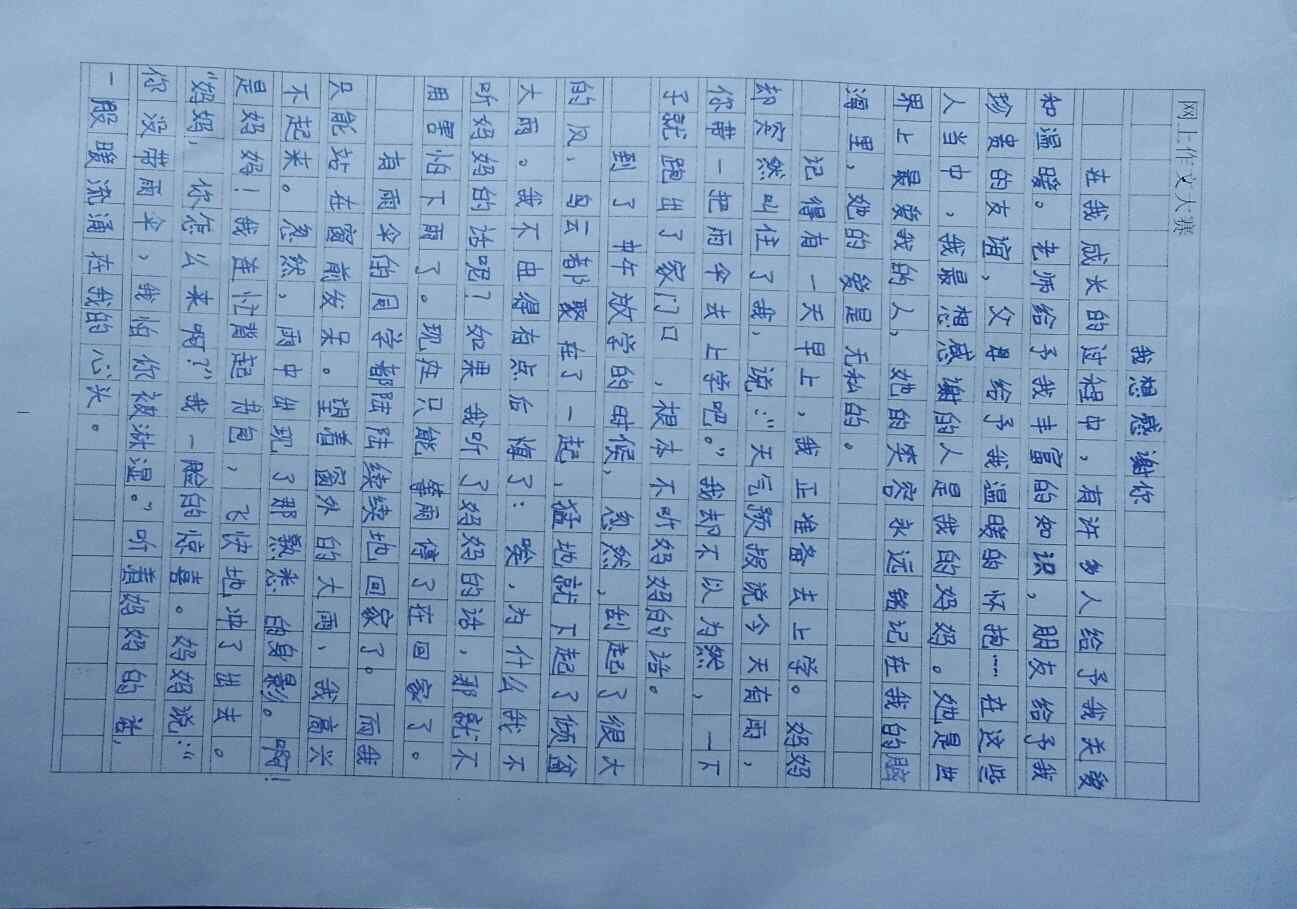 网上作文大赛
我想感谢你
在我成长的过程中，有许多人给予我关爱
和温暖。老师给予我丰富的知识，朋友给予我
珍贵的友谊，父母给予我温暖的怀抱…在这些
人当中，我最想感谢的人是我的妈妈。她是世
界上最爱我的人，她的笑容永远铭记在我的脑
海里，她的爱是无私的。
记得有一天早上，我正准备去上学。妈妈
却突然叫住了我，说：“天气预报说今天有雨，
你带一把雨伞去上学吧。”我却不以为然，一下
子就跑出了家门口，根本不听妈妈的话。
到了中午放学的时候，忽然，刮起了很大
的风，乌云都聚在了一起，猛地就下起了倾盆
大雨。我不由得有点后悔了：唉，为什么我不
听妈妈的话呢？如果我听了妈妈的话，那就不
用害怕下雨了。现在只能等雨停了在回家了。
有雨伞的同学都陆陆续续地回家了。而我
只能站在窗前发呆。望着窗外的大雨，我高兴
不起来。忽然，雨中出现了那熟悉的身影。啊！
是妈妈！我连忙背起书包，飞快地冲了出去。
“妈妈，你怎么来啊？”我一脸的惊喜。妈妈说：“
你没带雨伞，我怕你被淋湿。”听着妈妈的话，
一股暖流涌在我的心头。